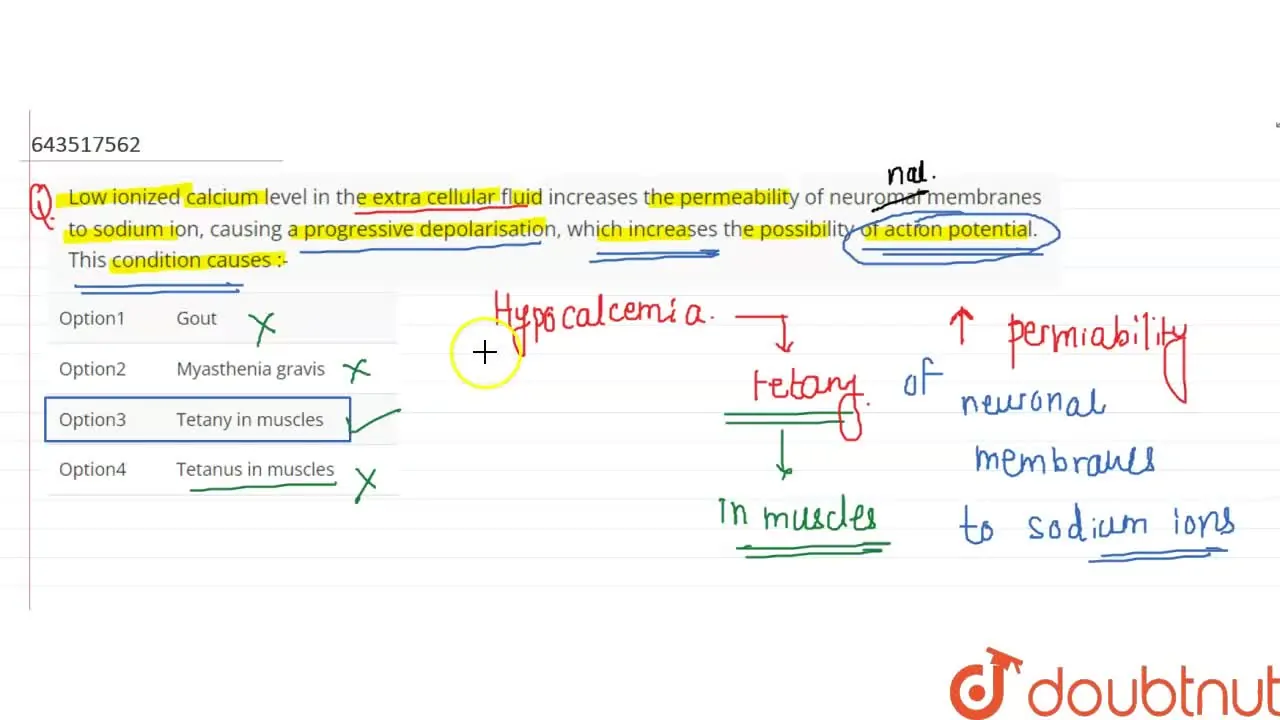 643517562
Q. Low ionized calcium level in the extra cellular fluid increases the permeability of neuromal membranes
nal.
to sodium ion, causing a progressive depolarisation, which increases the possibility of action potential.
This condition causes :-
Option1 Gout
Option2 Myasthenia gravis
Option3 Tetany in muscles
Option4 Tetanus in muscles
Hypocalcemia.
tetany.
in muscles
↑ permiability
of neuronal
membranes
to sodium ions
doubtnut